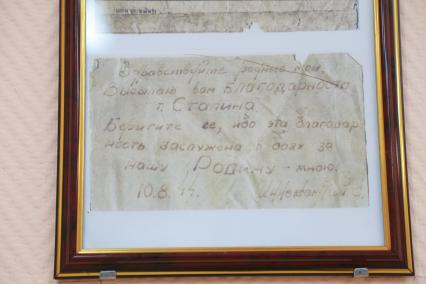 Здравствуйте родные мои.
Высылаю вам благодарность
т. Сталина
Берегите ее, ибо эта благодар
ность заслужена в боях за
нашу Родину - мною.
10.8.44.